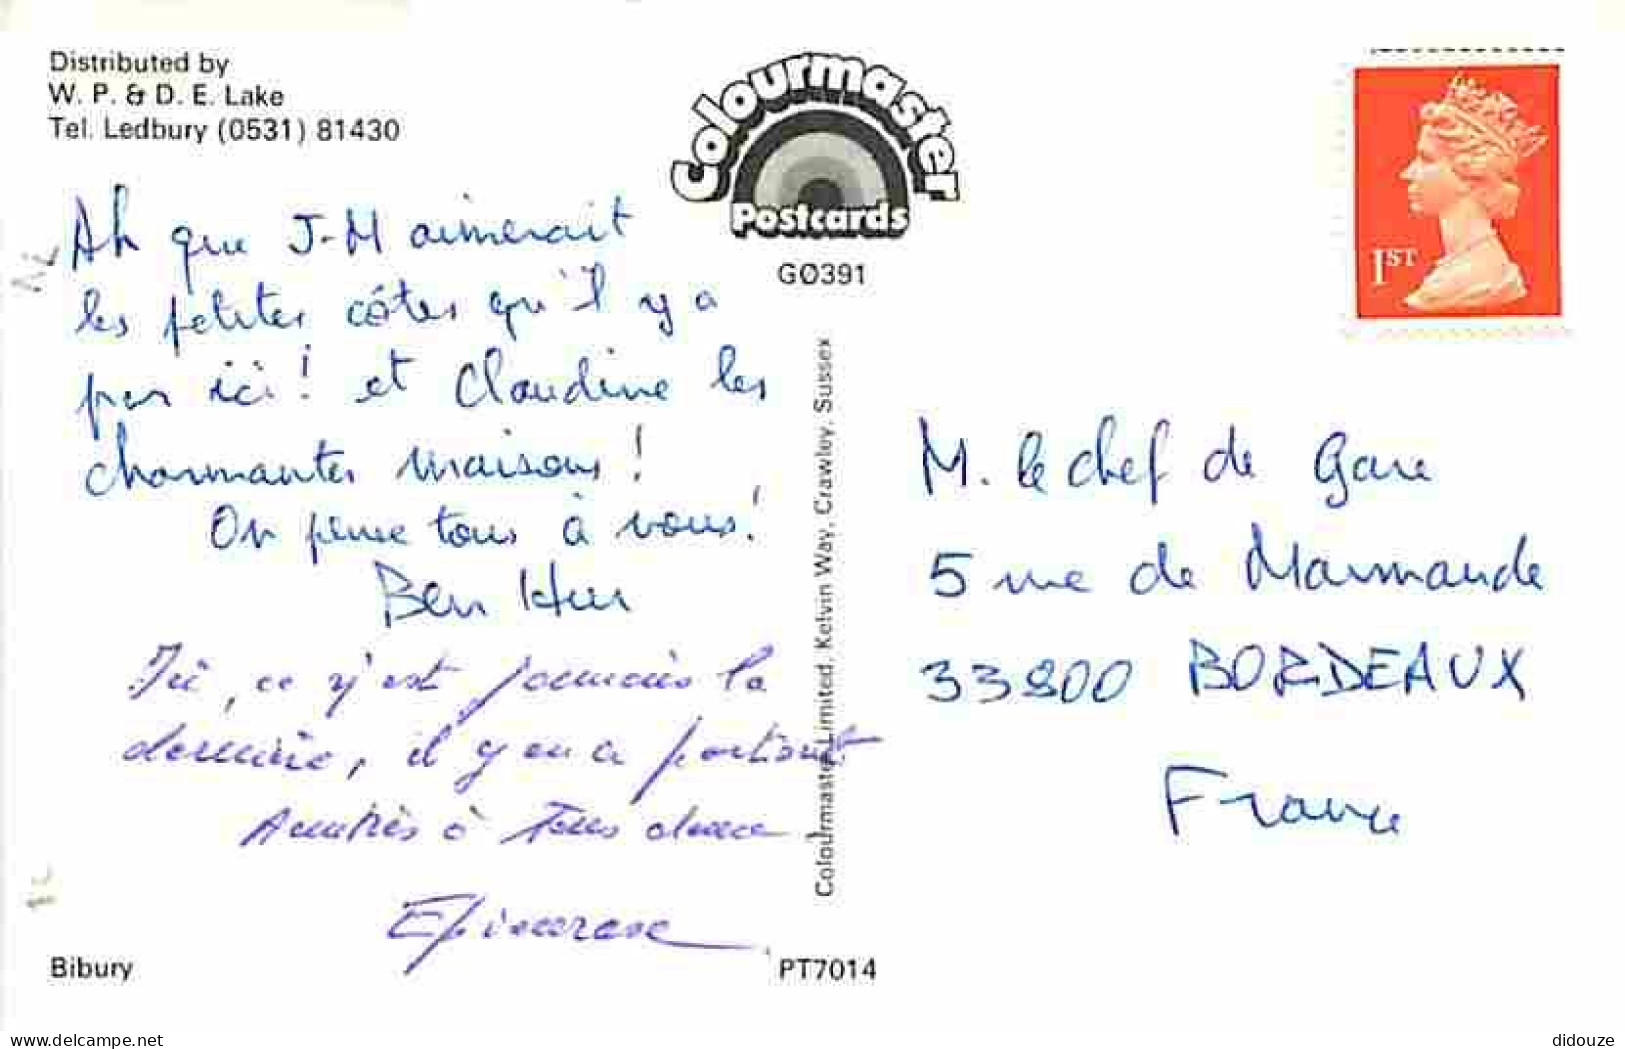 Distributed by
W. P. & D. E. Lake
Tel. Ledbury (0531) 81430
Colourmaster
Postcards
GO391
1ST
Ah que J-M aimerait
les petites côtes qu'il y a
par ici! et Claudine les
charmantes maisons!
On pense tous à vous!
Ben Hur
Ici, ce n'est jamais la
dernière, il y en a partout
à Tous deux
M. le chef de Gare
5 rue de Marmande
33800 BORDEAUX
France
Colourmaster Limited, Kelvin Way, Crawley, Sussex
Bibury
PT7014
www.delcampe.net
didouze